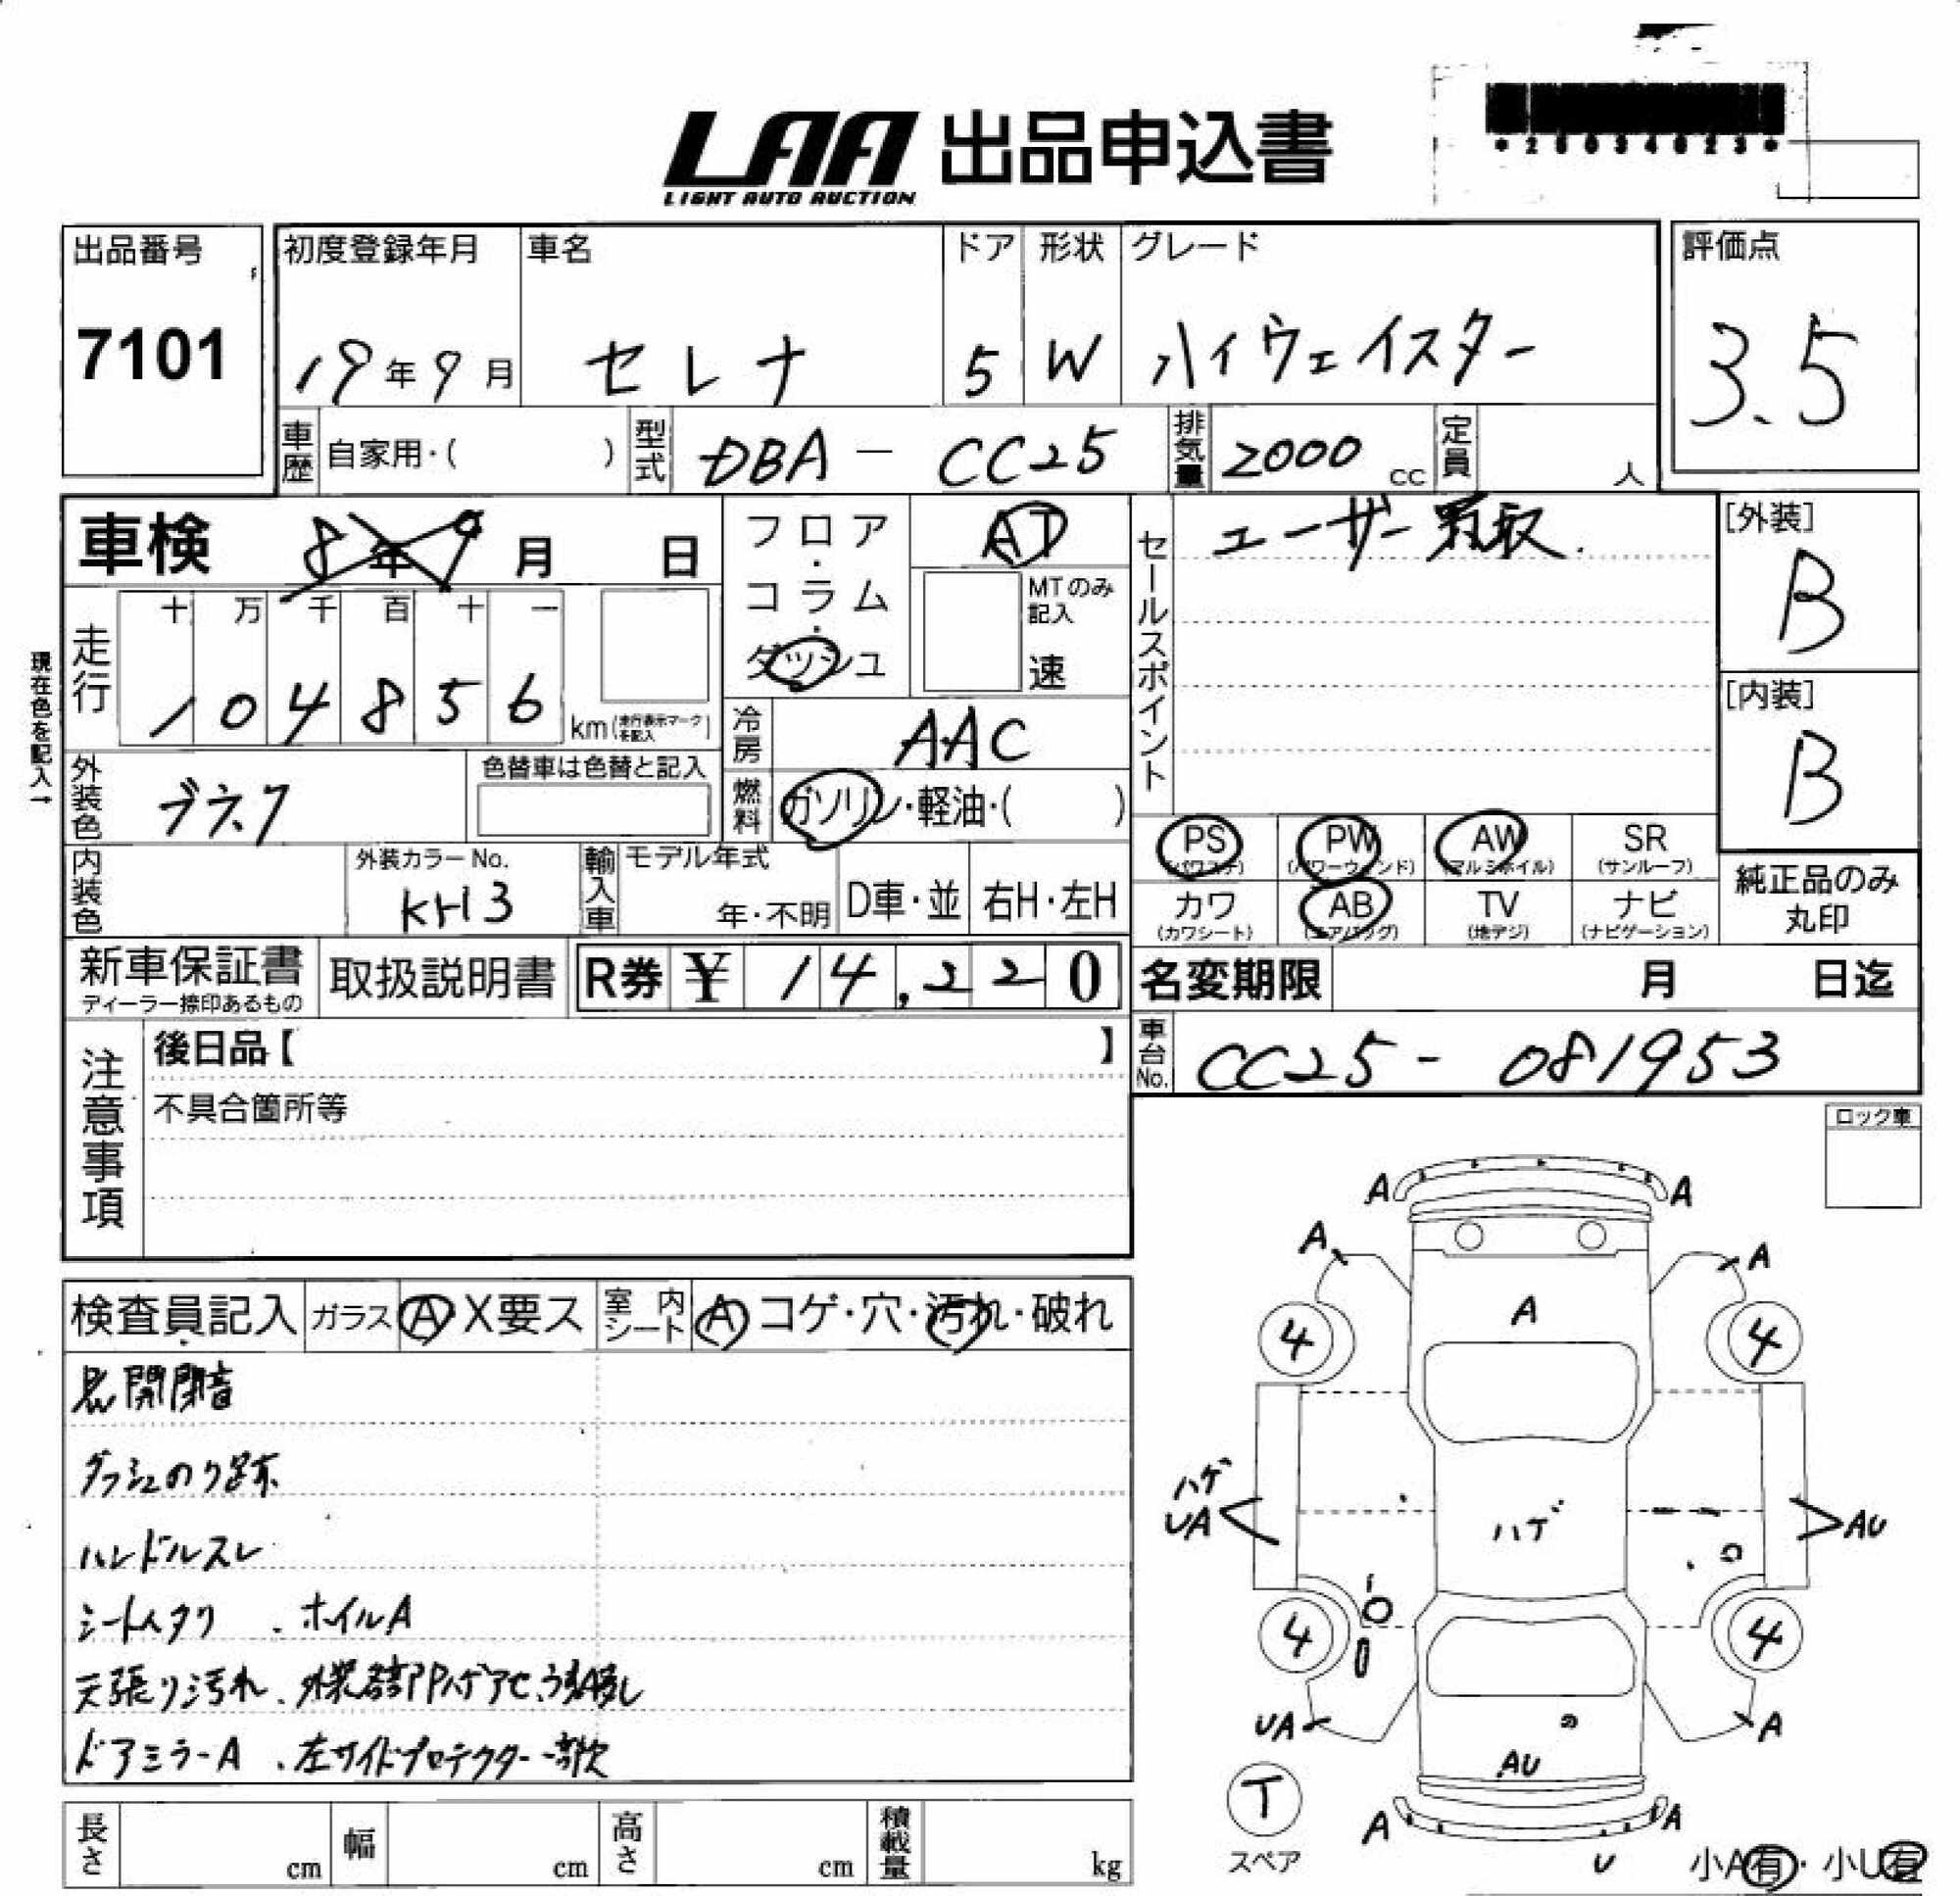 LAA 出品申込書
LIGHT AUTO AUCTION
*28034023*
出品番号
7101
初度登録年月
19年9月
車名
セレナ
ドア
5
形状
W
グレード
ハイウェイスター
評価点
3.5
車歴 自家用・( )
型式 DBA - CC25
排気量 2000 cc
定員 人
車検 8年9月 日
フロア・コラム・ダッシュ
AT
MTのみ記入
速
セールスポイント
ユーザー買取.
[外装]
B
[内装]
B
現在色を記入→
走行
十 万 千 百 十 一
1 0 4 8 5 6 km(走行表示マークを記入)
冷房 AAC
燃料 ガソリン・軽油・( )
外装色
色替車は色替と記入
PS (パワステ)
PW (パワーウィンド)
AW (アルミホイル)
SR (サンルーフ)
カワ (カワシート)
AB (エアバッグ)
TV (地デジ)
ナビ (ナビゲーション)
純正品のみ丸印
内装色
外装カラーNo.
KH3
輸入車
モデル年式
年・不明
D車・並
右H・左H
新車保証書
ディーラー捺印あるもの
取扱説明書
R券 ¥ 14,220
名変期限 月 日迄
車台No. CC25 - 081953
注意事項
後日品【 】
不具合箇所等
ロック車
検査員記入 ガラス A X要ス 室内シート A コゲ・穴・汚れ・破れ
開閉音
ダッシュのり跡
ハンドルスレ
シートヘタリ . ホイルA
天張り汚れ .
ドアミラーA . 左サイドプロテクター一部欠
A A
A A
A
4 4
ハゲ
UA
ハゲ
AU
4 4
UA A
AU
T
スペア
A A
U
小A有・小U有
長さ cm
幅 cm
高さ cm
積載量 kg